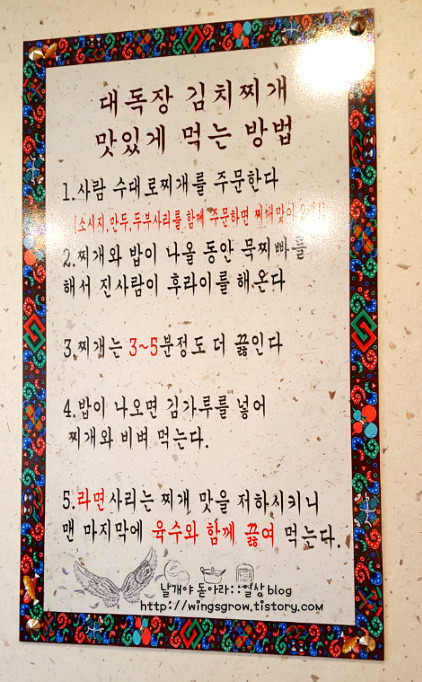 대독장 김치찌개
맛있게 먹는 방법
1.사람 수대로찌개를 주문한다
(소시지,만두,두부사리를 함께 주문하면 찌개맛이
2.찌개와 밥이 나올 동안 묵찌빠를
해서 진사람이 후라이를 해 온다
3.찌개는 3~5분정도 더 끓인다
4.밥이 나오면 김가루를 넣어
찌개와 비벼 먹는다.
5.라면사리는 찌개 맛을 저하시키니
맨 마지막에 육수와 함께 끓여 먹는다.
날개야 돋아라::일상 blog
http://wingsgrow.tistory.com